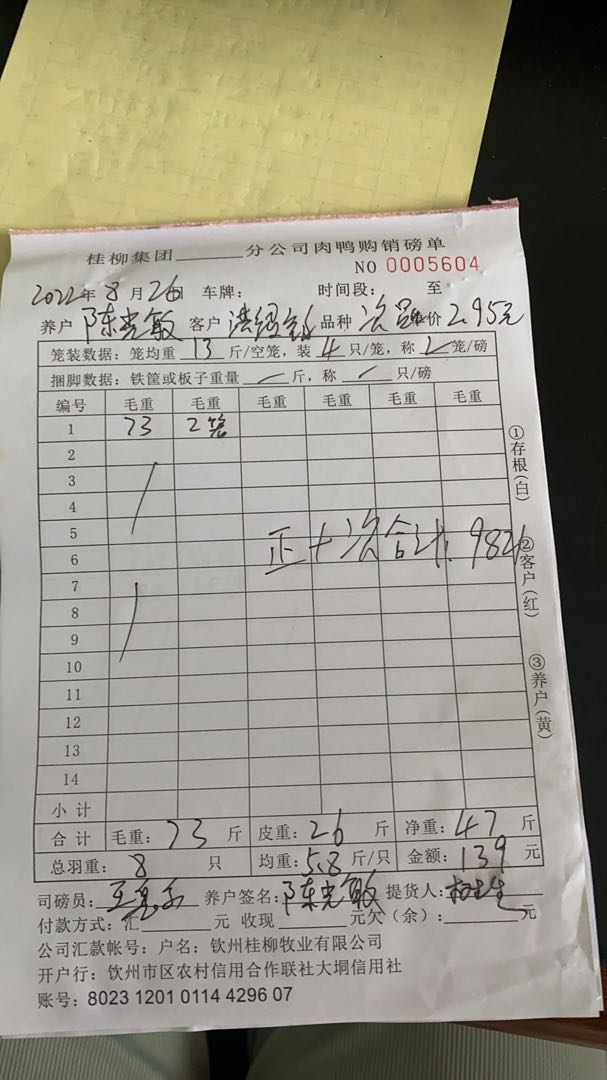 桂柳集团______分公司肉鸭购销磅单
NO 0005604
2022年8月26日 车牌: 时间段: 至
养户 陈光敏 客户 品种 次 单价 2.95元
笼装数据: 笼均重 13 斤/空笼, 装 4 只/笼, 称 2 笼/磅
捆脚数据: 铁筐或板子重量 / 斤, 称 / 只/磅
编号 毛重 毛重 毛重 毛重 毛重 毛重
1 73 2笼
2
3
4
5
正+次合计: 982
6
7
8
9
10
11
12
13
14
小计
合计 毛重: 73 斤 皮重: 26 斤 净重: 47 斤
总羽重: 8 只 均重: 5.8 斤/只 金额: 139 元
司磅员: 养户签名: 陈光敏 提货人:
付款方式: 汇______元 收现______元欠(余): ______元
公司汇款帐号: 户名: 钦州桂柳牧业有限公司
开户行: 钦州市区农村信用合作联社大垌信用社
账号: 8023 1201 0114 4296 07
①存根(白)
②客户(红)
③养户(黄)